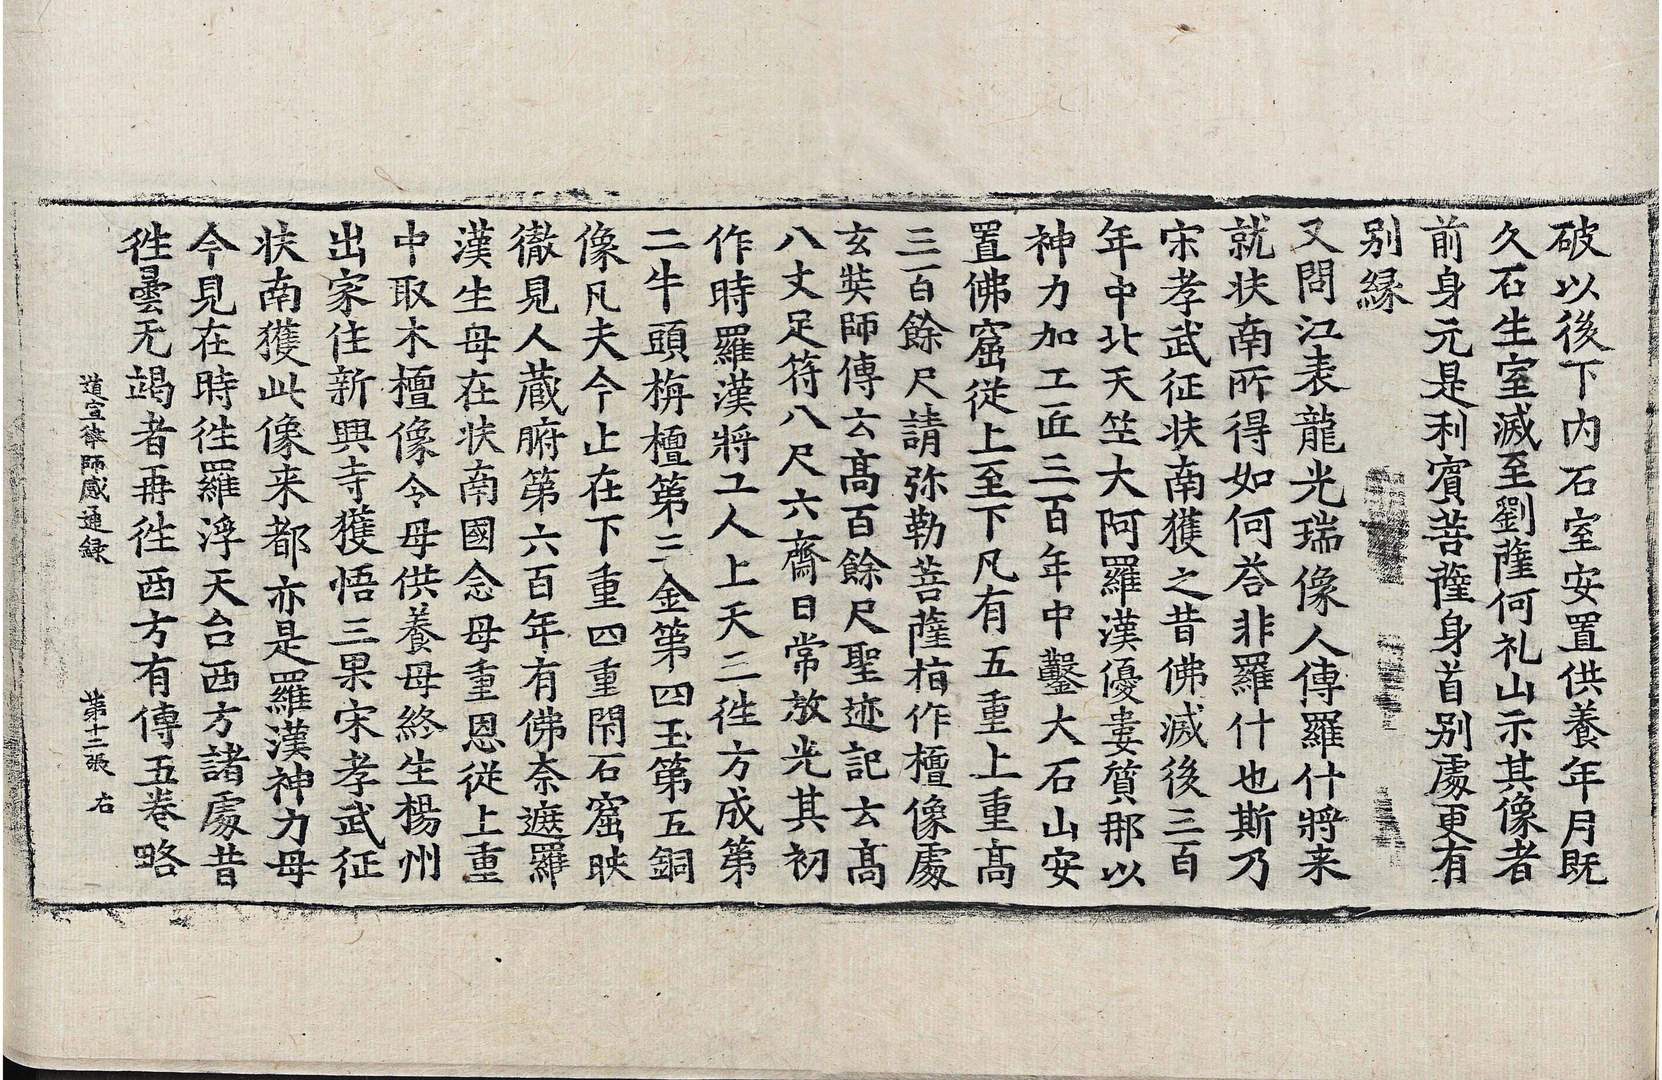 破以後下內石室安置供養年月既
久石生室滅至劉薩何礼山示其像者
前身元是利賓菩薩身首別處更有
別縁
又問江表龍光瑞像人傳羅什將来
就扶南所得如何荅非羅什也斯乃
宋孝武征扶南獲之昔佛滅後三百
年中北天笁大阿羅漢優婁質那以
神力加工匠三百年中鑿大石山安
置佛窟從上至下凡有五重上重高
三百餘尺請弥勒菩薩指作檀像處
玄奘師傳云高百餘尺聖迹記云高
八丈足符八尺六齋日常放光其初
作時羅漢將工人上天三徃方成第
二牛頭栴檀第三金第四玉第五銅
像凡夫今止在下重四重閇石窟映
徹見人蔵腑第六百年有佛奈遮羅
漢生母在扶南國念母重恩從上重
中取木檀像令母供養母終生楊州
出家住新興寺獲悟三果宋孝武征
扶南獲此像来都亦是羅漢神力母
今見在時徃羅浮天台西方諸處昔
徃曇无竭者再徃西方有傳五卷略
道宣律師感通録 第十二張 右